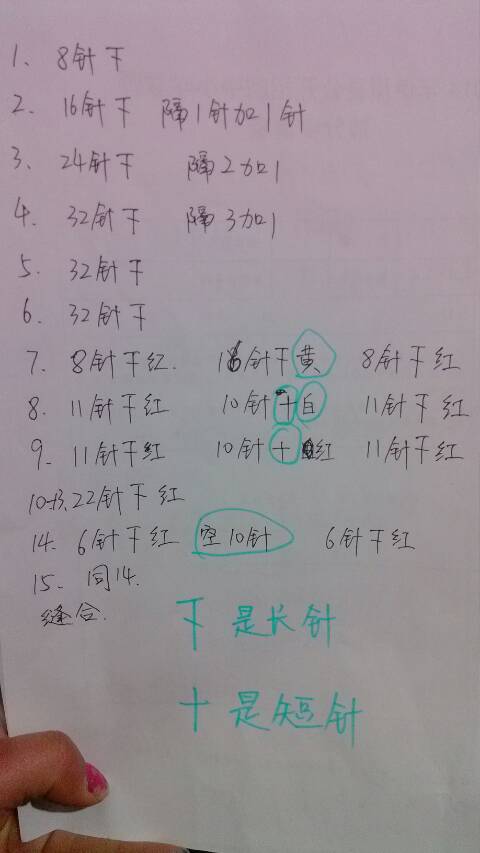 1. 8针下
2. 16针下 隔1针加1针
3. 24针下 隔2加1
4. 32针下 隔3加1
5. 32针下
6. 32针下
7. 8针下红. 16针下黄 8针下红
8. 11针下红 10针十白 11针下红
9. 11针下红 10针十红 11针下红
10-13. 22针下红
14. 6针下红 空10针 6针下红
15. 同14.
缝合.
下是长针
十是短针